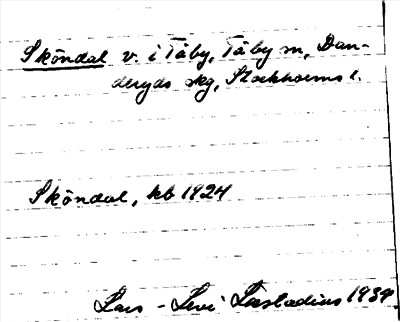 Sköndal v. i Täby, Täby sn, Dan-
deryds skg, Stockholms l.
Sköndal, kb 1924
Lars-Levi Læstadius 1934.